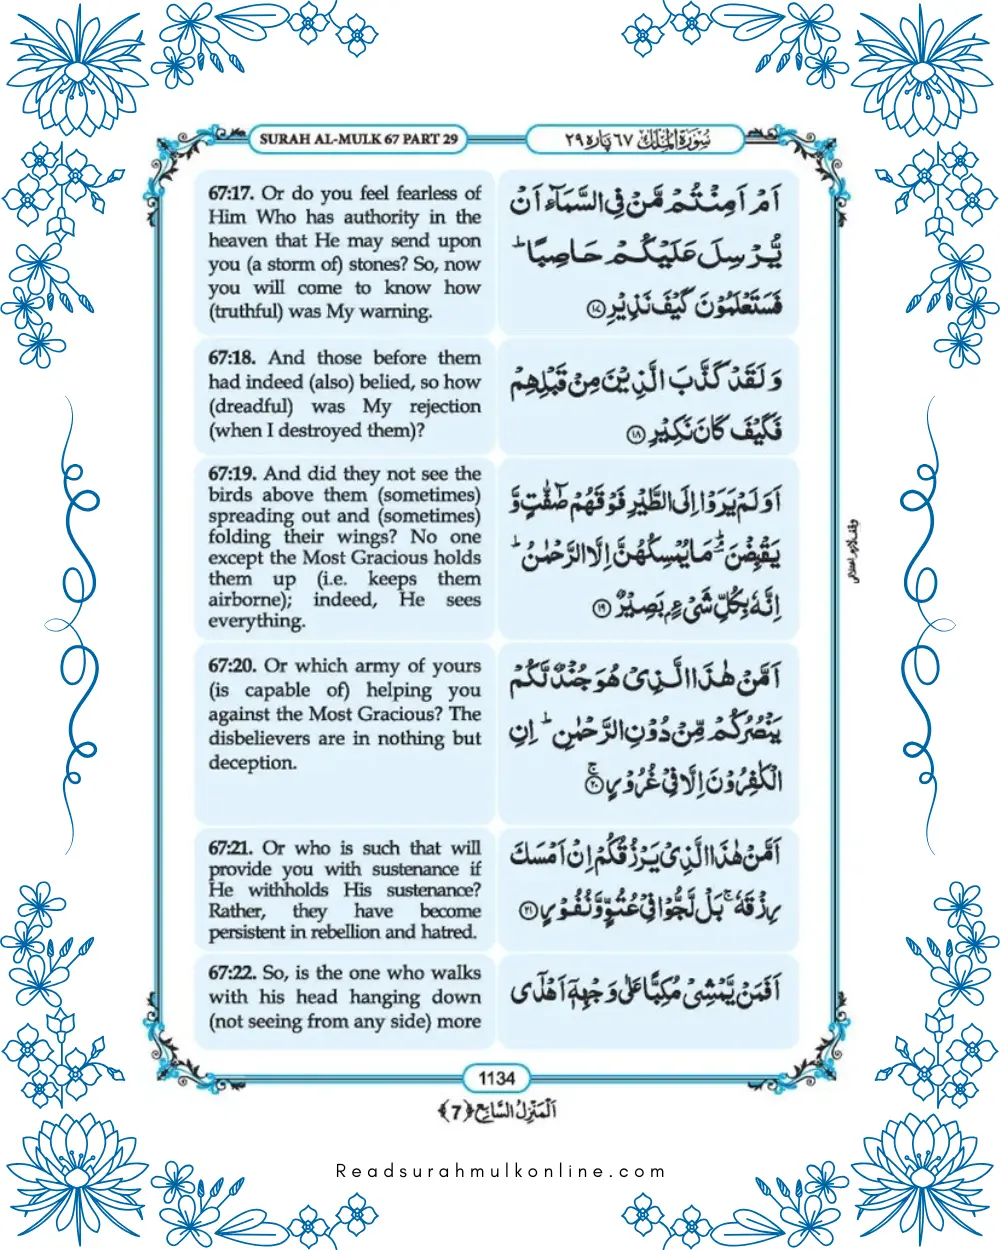 SURAH AL-MULK 67 PART 29
سُوْرَةُ الْمُلْك ٦٧ پَارَہ ٢٩
67:17. Or do you feel fearless of
Him Who has authority in the
heaven that He may send upon
you (a storm of) stones? So, now
you will come to know how
(truthful) was My warning.
اَمْ اَمِنْتُمْ مَّنْ فِی السَّمَآءِ اَنْ
یُّرْسِلَ عَلَیْكُمْ حَاصِبًا ؕ
فَسَتَعْلَمُوْنَ كَیْفَ نَذِیْرِ ١٧
67:18. And those before them
had indeed (also) belied, so how
(dreadful) was My rejection
(when I destroyed them)?
وَ لَقَدْ كَذَّبَ الَّذِیْنَ مِنْ قَبْلِهِمْ
فَكَیْفَ كَانَ نَكِیْرِ ١٨
67:19. And did they not see the
birds above them (sometimes)
spreading out and (sometimes)
folding their wings? No one
except the Most Gracious holds
them up (i.e. keeps them
airborne); indeed, He sees
everything.
اَوَ لَمْ یَرَوْا اِلَی الطَّیْرِ فَوْقَهُمْ صٰٓفّٰتٍ وَّ
یَقْبِضْنَ ؔۘؕ مَا یُمْسِكُهُنَّ اِلَّا الرَّحْمٰنُ ؕ
اِنَّهٗ بِكُلِّ شَیْءٍۭ بَصِیْرٌ ١٩
67:20. Or which army of yours
(is capable of) helping you
against the Most Gracious? The
disbelievers are in nothing but
deception.
اَمَّنْ هٰذَا الَّذِیْ هُوَ جُنْدٌ لَّكُمْ
یَنْصُرُكُمْ مِّنْ دُوْنِ الرَّحْمٰنِ ؕ اِنِ
الْكٰفِرُوْنَ اِلَّا فِیْ غُرُوْرٍ ۚ ٢٠
67:21. Or who is such that will
provide you with sustenance if
He withholds His sustenance?
Rather, they have become
persistent in rebellion and hatred.
اَمَّنْ هٰذَا الَّذِیْ یَرْزُقُكُمْ اِنْ اَمْسَكَ
رِزْقَهٗ ۚ بَلْ لَّجُّوْا فِیْ عُتُوٍّ وَّ نُفُوْرٍ ٢١
67:22. So, is the one who walks
with his head hanging down
(not seeing from any side) more
اَفَمَنْ یَّمْشِیْ مُكِبًّا عَلٰی وَجْهِهٖۤ اَهْدٰۤی
1134
اَلْمَنْزِلُ السَّابِع ﴿7﴾
Readsurahmulkonline.com